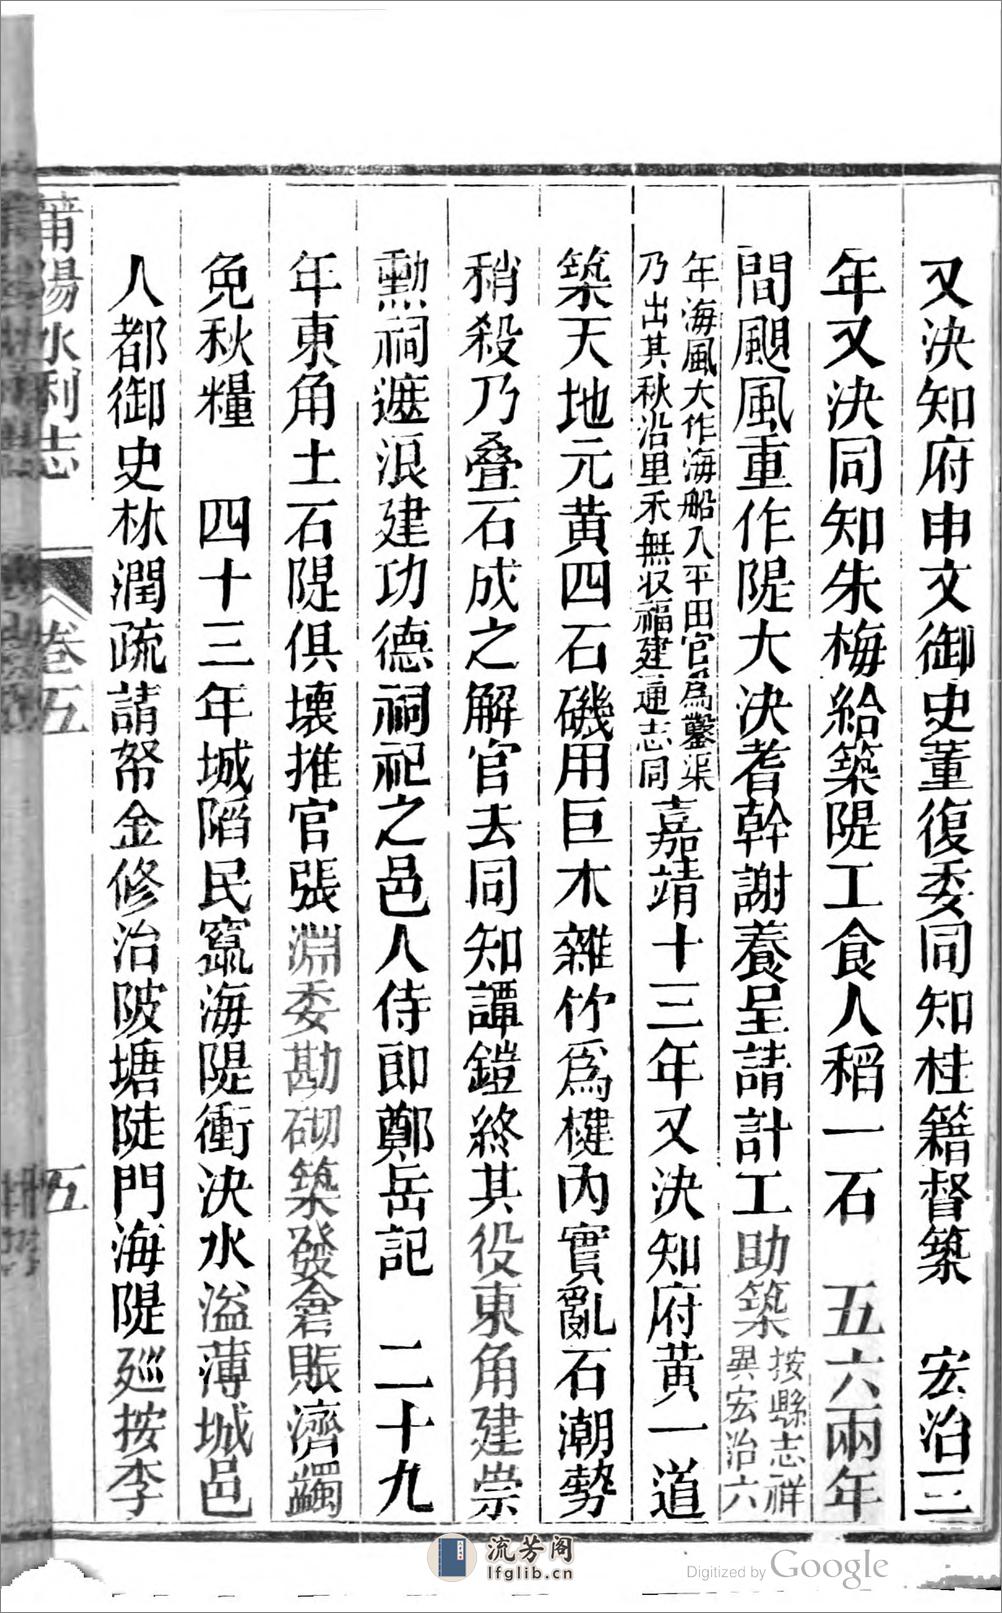 又決知府申文御史董復委同知桂籍督築　宏治三
年又決同知朱梅給築隄工食人稻一石　五六兩年
間颶風重作隄大決耆幹謝養呈請計工助築按縣志祥
異宏治六
年海風大作海船入平田官爲鑿渠
乃出其秋沿里禾無収福建通志同嘉靖十三年又決知府黄一道
築天地元黄四石磯用巨木雜竹爲楗內實亂石潮勢
稍殺乃叠石成之解官去同知譚鎧終其役東角建崇
勳祠遮浪建功德祠祀之邑人侍郎鄭岳記　二十九
年東角土石隄俱壞推官張淵委勘砌築發倉賑濟蠲
免秋糧　四十三年城陷民竄海隄衝決水溢薄城邑
人都御史林潤疏請帑金修治陂塘陡門海隄廵按李
莆陽水利志　卷五　五
流芳阁
lfglib.cn
Digitized by Google